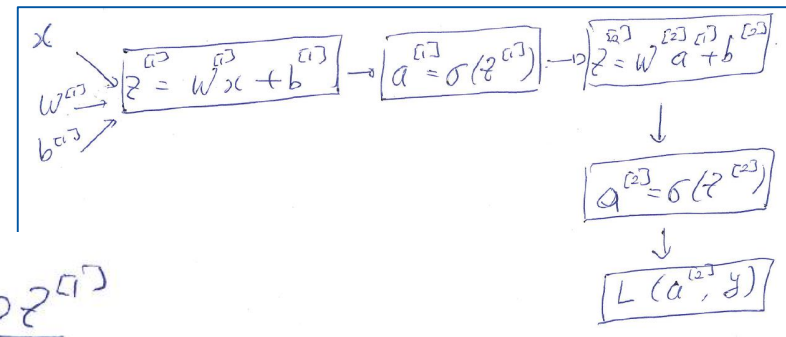 x
W^[1]
b^[1]
z^[1] = W^[1]x + b^[1] → a^[1] = σ(z^[1]) → z^[2] = W^[2]a^[1] + b^[2]
a^[2] = σ(z^[2])
L(a^[2], y)
∂z^[1]